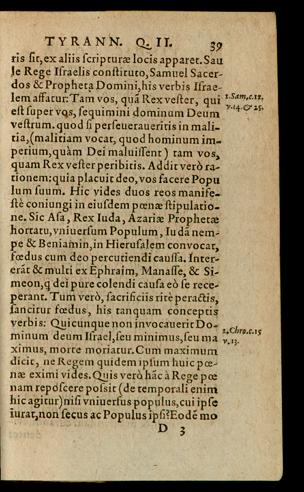 TYRANN. Q. II. 39
ris sit, ex aliis scripturæ locis apparet. Sau
le Rege Israelis constituto, Samuel Sacer-
dos & Propheta Domini, his verbis Israe-
lem affatur: Tam vos, quã Rex vester, qui
est super vos, sequimini dominum Deum
vestrum. quod si perseueraueritis in mali-
tia, (malitiam vocat, quod hominum im-
perium, quàm Dei maluissent) tam vos,
quam Rex vester peribitis. Addit verò ra-
tionem: quia placuit deo, vos facere Popu
lum suum. Hic vides duos reos manife-
stè coniungi in eiusdem pœnæ stipulatio-
ne. Sic Asa, Rex Iuda, Azariæ Prophetæ
hortatu, vniuersum Populum, Iudã nem-
pe & Beniamin, in Hierusalem conuocat,
fœdus cum deo percutiendi caussa. Inter-
erãt & multi ex Ephraim, Manasse, & Si-
meon, q dei pure colendi causa eò se rece-
perant. Tum verò, sacrificiis ritè peractis,
sancitur fœdus, his tanquam conceptis
verbis: Quicunque non inuocauerit Do-
minum deum Israel, seu minimus, seu ma
ximus, morte moriatur. Cum maximum
dicit, ne Regem quidem ipsum huic pœ-
næ eximi vides. Quis verò hãc à Rege pœ
nam reposcere possit (de temporali enim
hic agitur) nisi vniuersus populus, cui ipse
iurat, non secus ac Populus ipsi? Eo de mo
D 3
1. Sam. c. 12.
v. 14. & 25.
2. Chro. c. 15
v. 13.